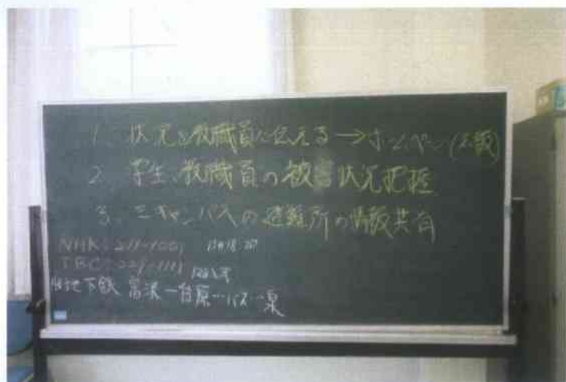 1. 状況を教職員に伝える→ホームペー
2. 学生、教職員の被害状況把握
3. 三キャンパスの避難所の情報共有
NHK:211-1001
TBC:229-1111
地下鉄 富沢―台原…バス…泉